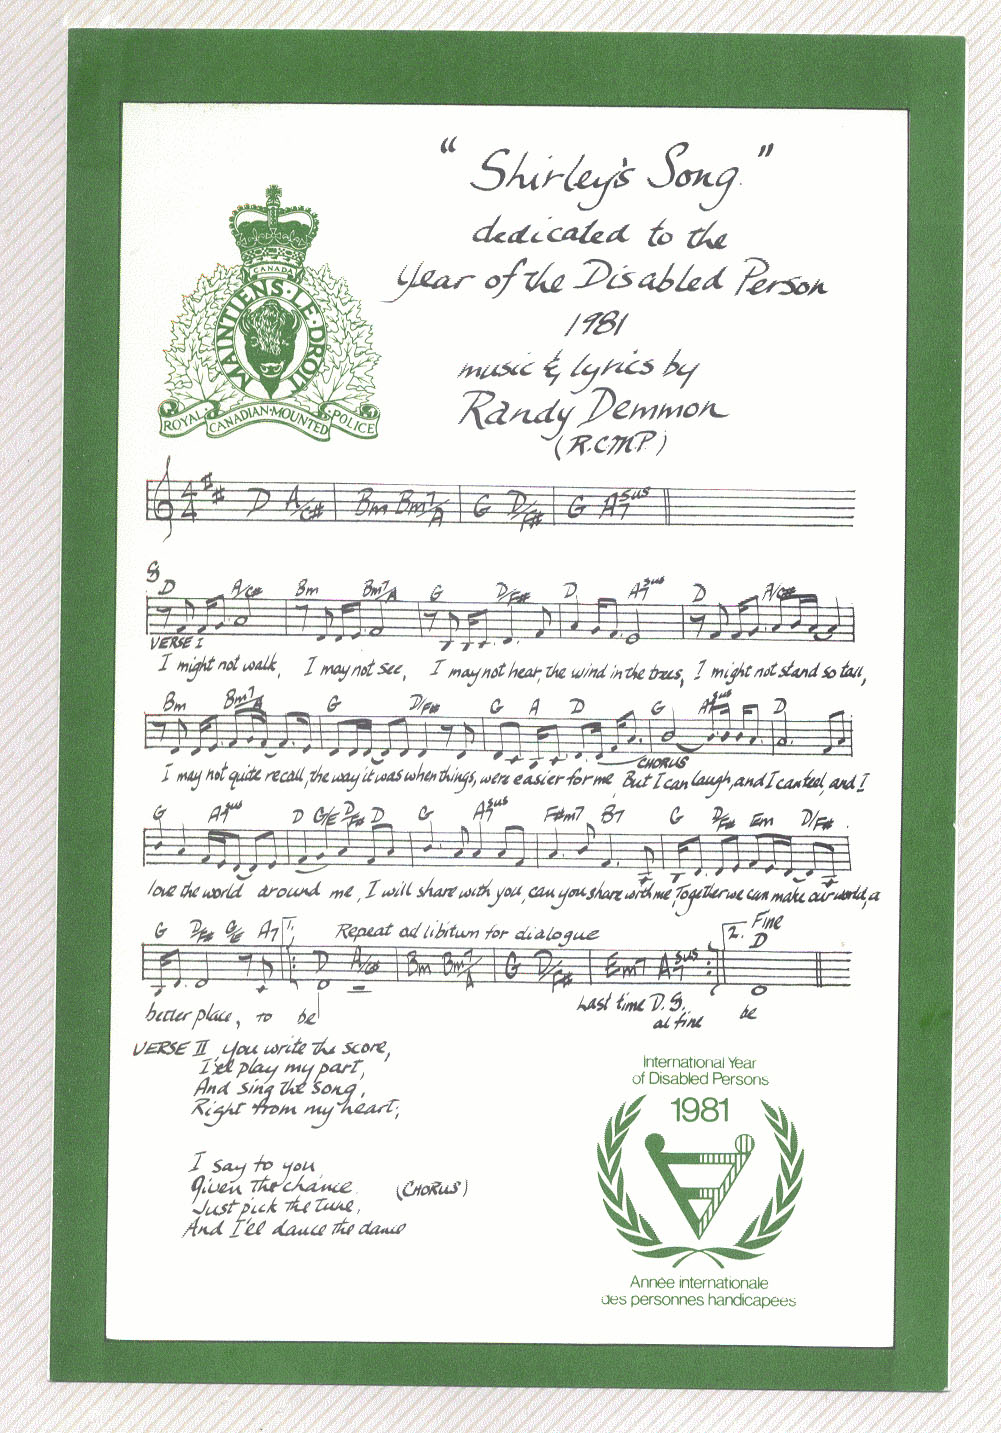 "Shirley's Song"
dedicated to the
Year of the Disabled Person
1981
music & lyrics by
Randy Demmon
(R.C.M.P.)
CANADA
MAINTIENS·LE·DROIT
ROYAL CANADIAN·MOUNTED POLICE
4/4 D A/C# Bm Bm7/A G D/F# G A7sus
D A/C# Bm Bm7/A G D/F# D A7sus D A/C#
VERSE I
I might not walk, I may not see, I may not hear, the wind in the trees, I might not stand so tall,
Bm Bm7/A G D/F# G A D G A7sus D
CHORUS
I may not quite recall, the way it was when things, were easier for me, But I can laugh, and I can feel, and I
G A7sus D G/E D/F# D G A7sus F#m7 B7 G D/F# Em D/F#
love the world around me, I will share with you, can you share with me, Together we can make our world, a
G D/F# G/E A7 1. Repeat ad libitum for dialogue 2. Fine
D A/C# Bm Bm7/A G D/F# Em7 A7sus D
Last time D.S.
al fine
better place, to be be
VERSE II You write the score,
I'll play my part,
And sing the song,
Right from my heart;
I say to you
Given the chance (CHORUS)
Just pick the tune,
And I'll dance the dance
International Year
of Disabled Persons
1981
Année internationale
des personnes handicapées